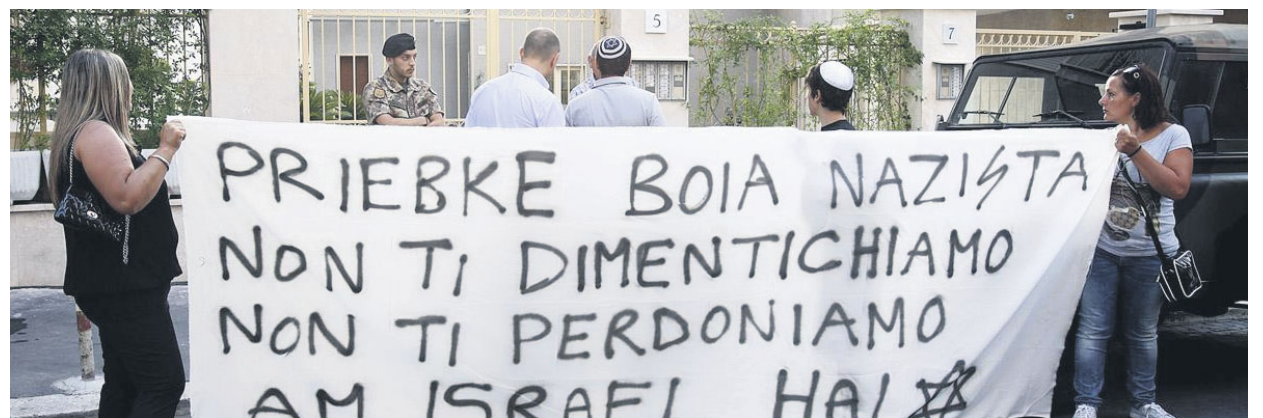 5
7
PRIEBKE BOIA NAZISTA
NON TI DIMENTICHIAMO
NON TI PERDONIAMO
AM ISRAEL HAI